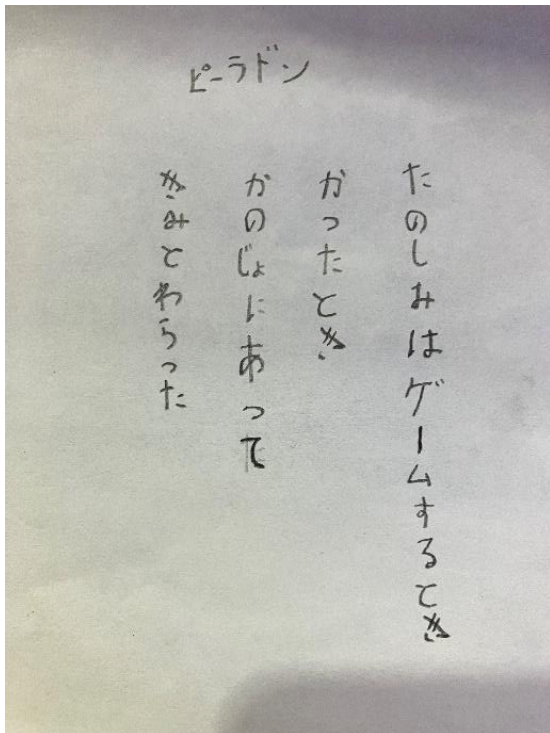 ピーラドン
たのしみはゲームするとき
かったとき
かのじょにあって
きみとわらった